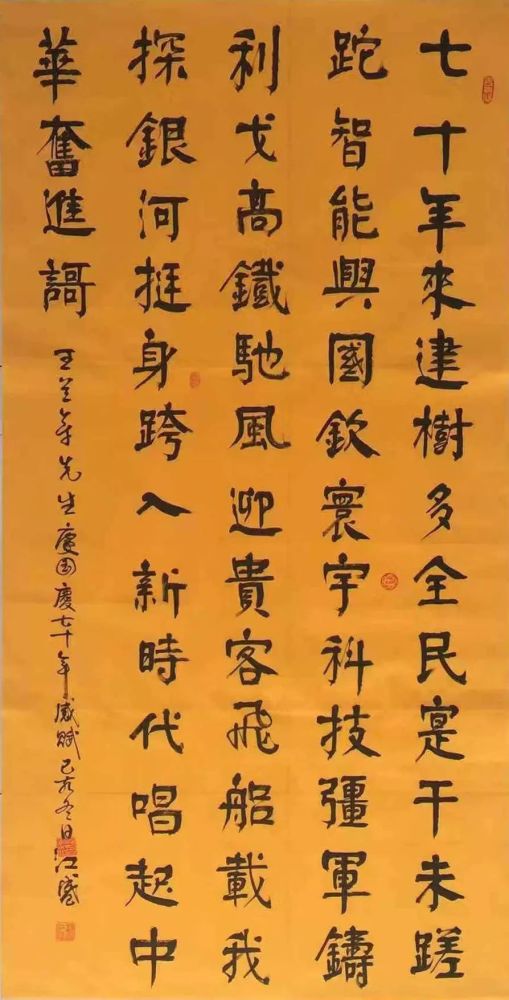 七十年來建樹多全民寔干未蹉
跎智能興國欽寰宇科技彊軍鑄
利戈高鐵馳風迎貴客飛船載我
探銀河挺身跨入新時代唱起中
華奮進謌
王先生國慶七十年感賦己亥冬日江